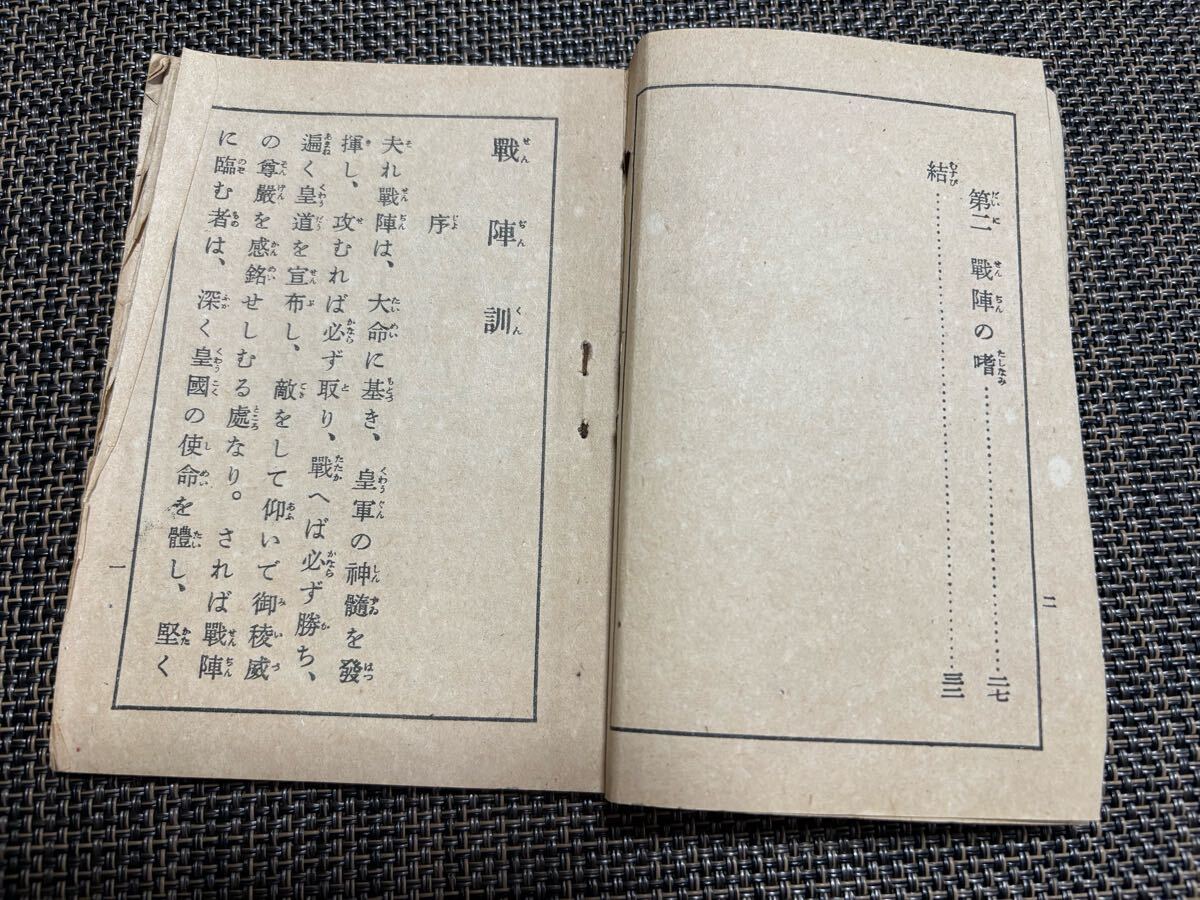 二
第二 戰陣の嗜………二七
結………三二
戰陣訓
序
夫れ戰陣は、大命に基き、皇軍の神髓を發
揮し、攻むれば必ず取り、戰へば必ず勝ち、
遍く皇道を宣布し、敵をして仰いで御稜威
の尊嚴を感銘せしむる處なり。されば戰陣
に臨む者は、深く皇國の使命を體し、堅く
一